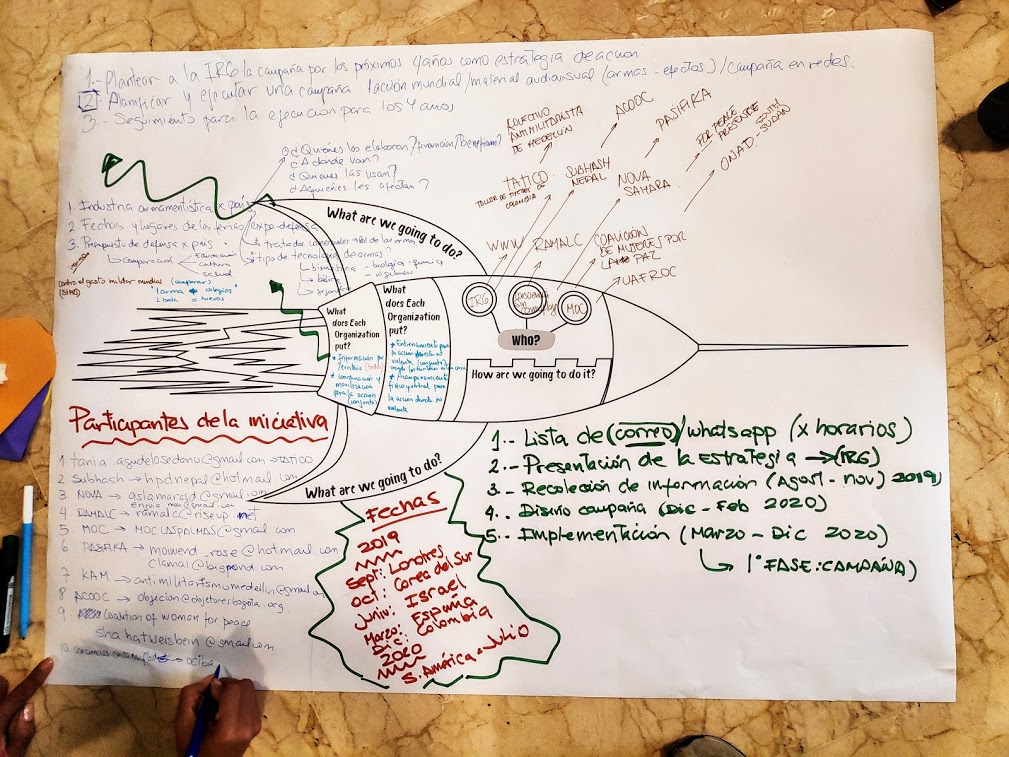 1.- Plantear a la IRG la campaña por los próximos 4 años como estrategia de acción
2 Planificar y ejecutar una campaña 1 acción mundial/material audiovisual (armas-efectos)/campaña en redes.
3.- Seguimiento para la ejecución para los 4 años
¿Quiénes los elaboran?/financian?/benefician?
¿A donde van?
¿Quienes las usan?
¿A quiénes les afectan?
1. Industria armamentística x país
2. Fechas y lugares de la ferias/expo-defensa
3. Presupuesto de defensa x país.
comparación
Educación
cultura
salud
contra el gasto militar mundial (comparar)
(SIPRI)
1 arma colegios
1 bala = nuevos
tratados comerciales
tipo de tecnología de armas?
biológica - química
bélica
vigilancia
COLECTIVO
ANTIMILITARISTA
DE MEDELLIN
ACOOC
PASIFIKA
FOR PEACE
PRESENCE
ONAD. SOUTH
SUDAN
TATICO
TALLER DE TITERES DE
COLOMBIA
SUBHASH
NEPAL
NOVA
SAHARA
WWW
RAMALC
COALICIÓN
DE MUJERES POR
LA PAZ
UAFROC
What are we going to do?
IRG
MOC
Who?
How are we going to do it?
What
does Each
Organization
put?
* Información por
territorio (todos)
* comunicación y
movilización
para la acción
(conjunta)
What
does Each
Organization
put?
* Entrenamiento para
la acción directa no
violenta (conjunto)
* Acompañamiento
físico y virtual para
la acción directa no
violenta
What are we going to do?
Participantes de la iniciativa
1 tania.agudelosedano@gmail.com → TATICO
2 Subhash → hpdnepal@hotmail.com
3 NOVA → aslamarad@gmail.com
4 RAMALC → ramalc@riseup.net
5 MOC → MOCLASPALMAS@gmail.com
6 PASIFIKA → moiwend_rose@hotmail.com
clamal@bigpond.com
7 KAM → antimilitarismomedellin@gmail.com
8 ACOOC → objecion@objetoresbogota.org
9 Coalition of woman for peace
shahatweisbein@gmail.com
10
Fechas
2019
Sept: Londres
Oct: Corea del Sur
Junio: Israel
Marzo: España
Dic: Colombia
2020
S. América - Julio
1.- Lista de (correo)/whatsapp (x horarios)
2.- Presentación de la estrategia → (IRG)
3.- Recolección de información (Agost - nov) 2019)
4.- Diseño campaña (Dic - Feb 2020)
5.- Implementación (Marzo - Dic 2020)
1° FASE: CAMPAÑA)